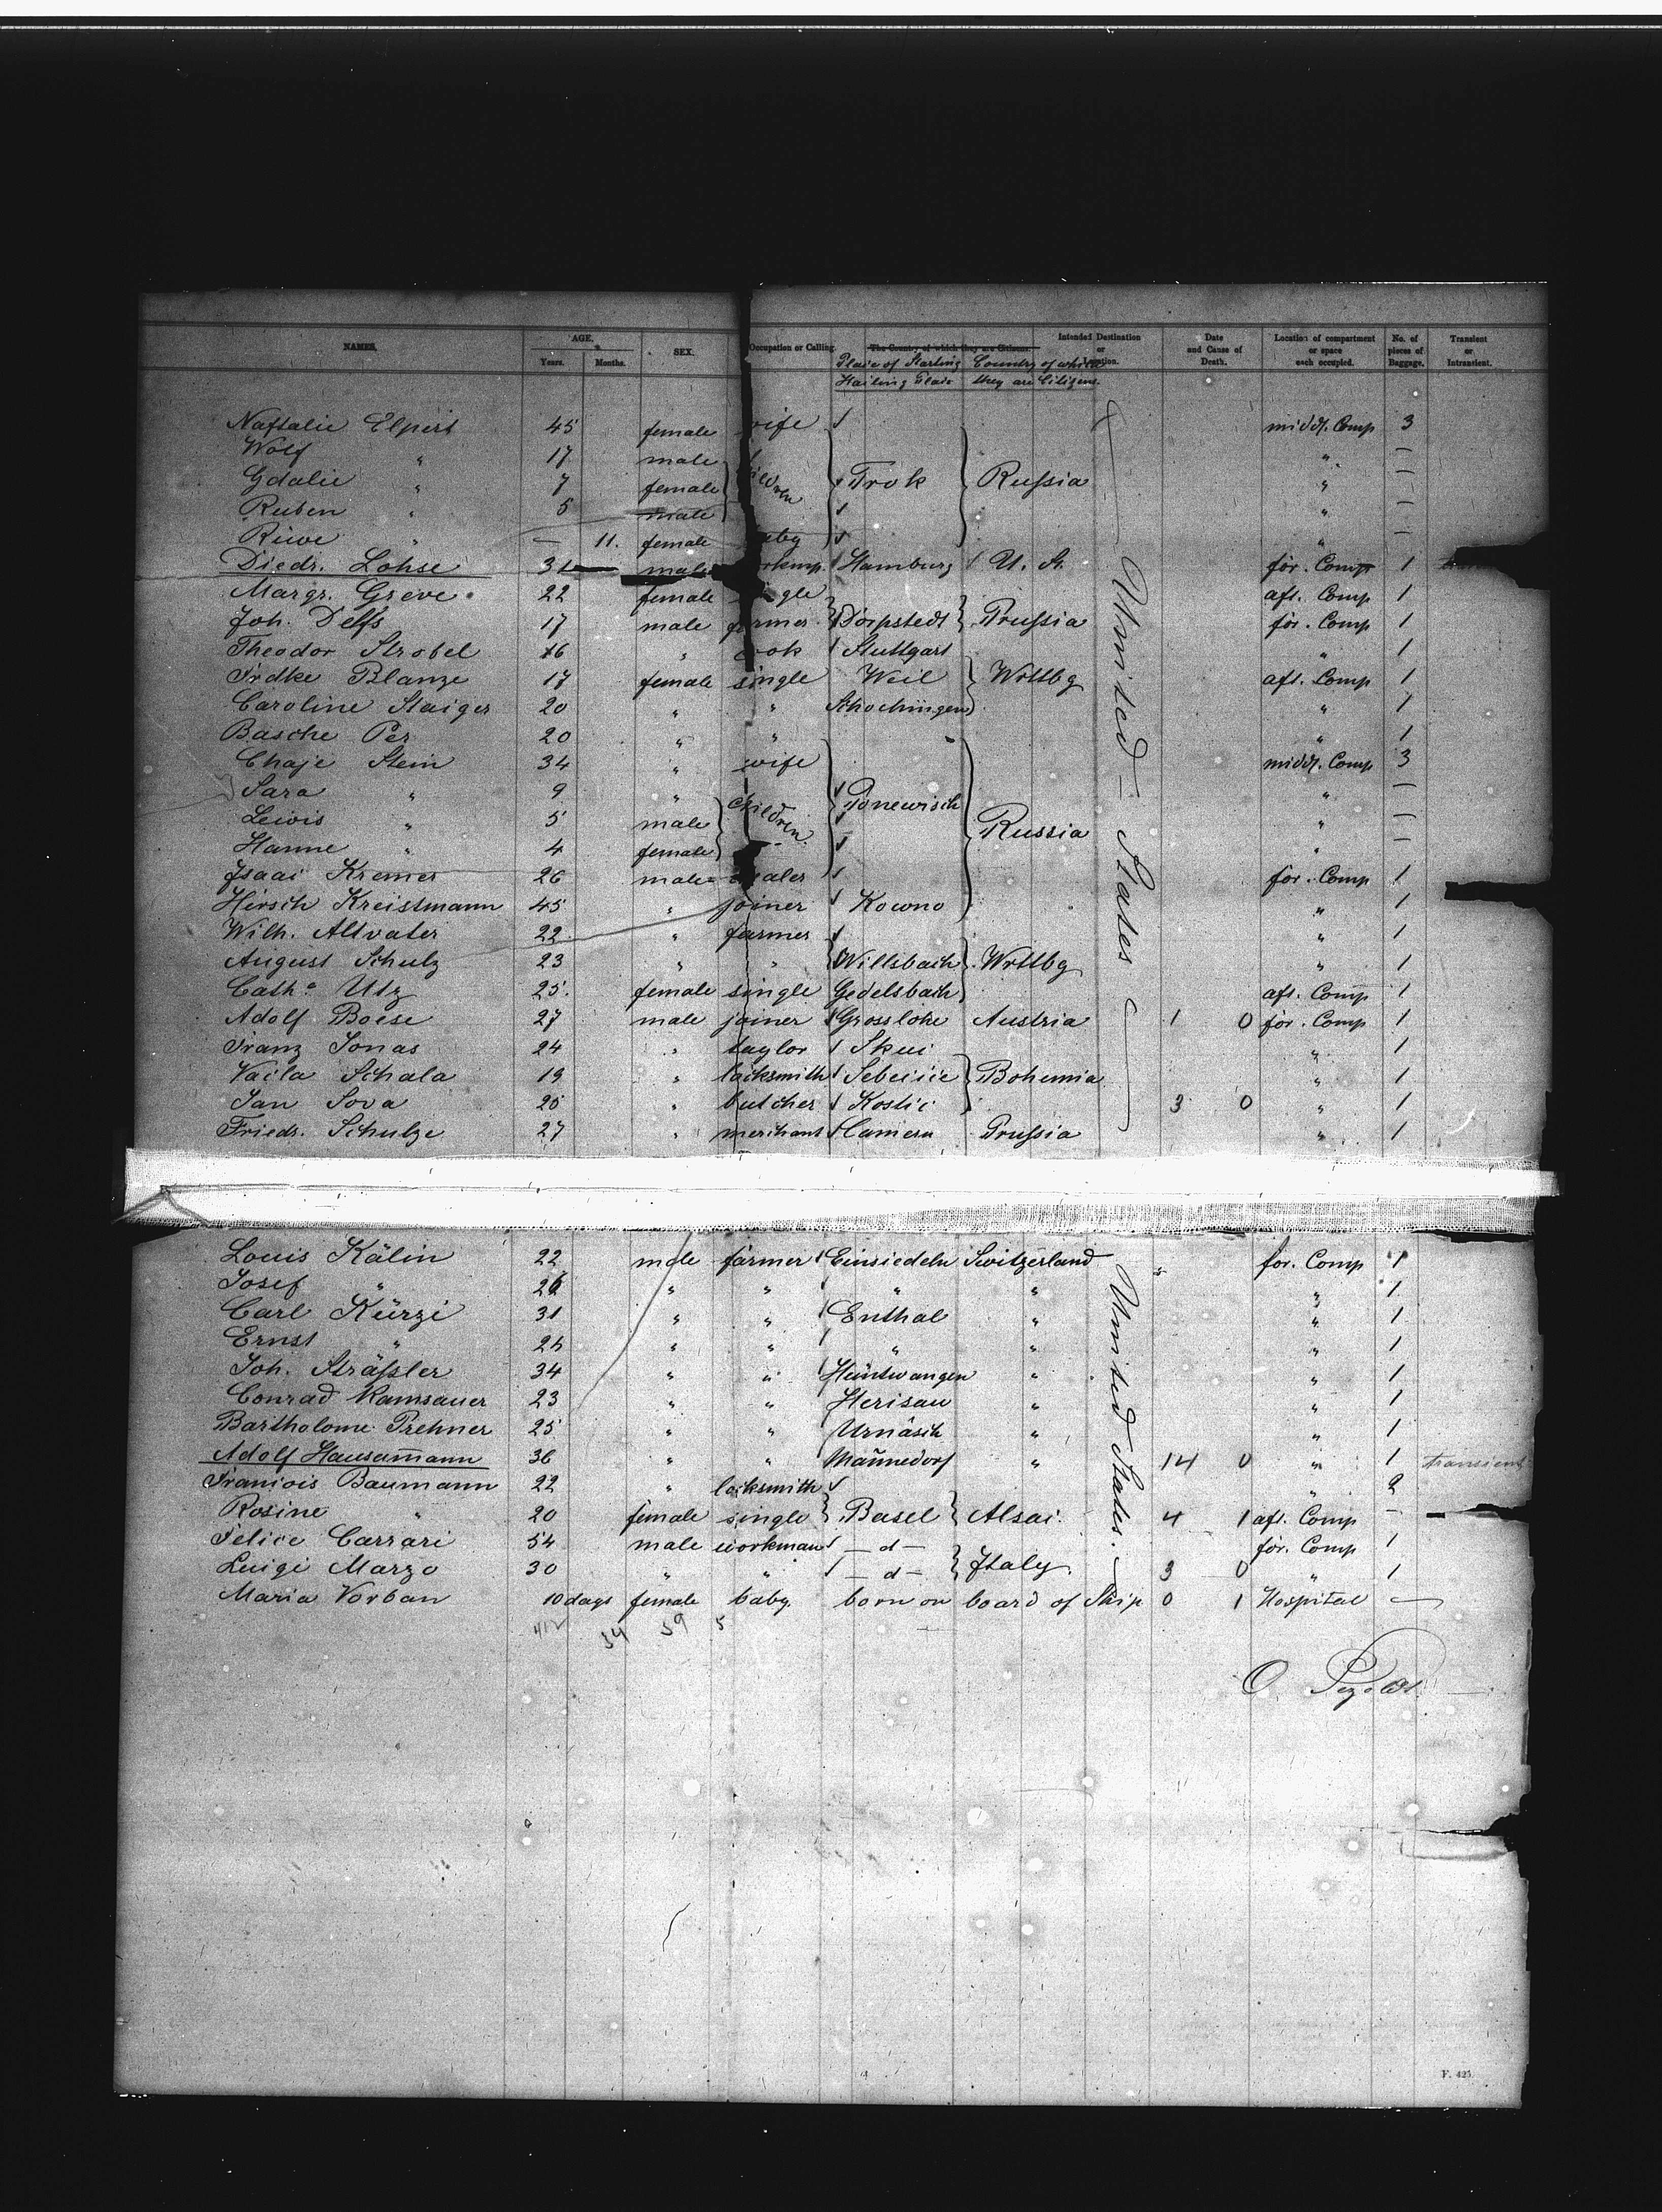 NAMES. AGE. SEX. Occupation or Calling. The Country of which they are Citizens. Intended Destination or Location. Date and Cause of Death. Location of compartment or space each occupied. No. of pieces of Baggage. Transient or Intransient.
Years. Months. Place of Starting Country of which
Hailing Place they are Citizens.
Naftalie Elpert 45 female wife middl. Comp 3
Wolf " 17 male " —
Gdalie " 7 female children Trok Russia " —
Ruben " 5 male " —
Riwe " — 11. female baby " —
Diedr. Lohse 31 male Hamburg U. St. for. Comp 1
Margr. Greve 22 female single aft. Comp 1
Joh. Delfs 17 male farmer Dörpstedt Prussia for. Comp 1
Theodor Strobel 16 " Stuttgart " 1
Frdke Blanze 17 female single Weil Wrttbg aft. Comp 1
Caroline Staiger 20 " " " 1
Basche Per 20 " " " 1
Chaje Stein 34 " wife middl. Comp 3
Sara " 9 " Ponewisch " —
Lewis " 5 male children " —
Hanne " 4 female Russia " —
Isaac Kremer 26 male for. Comp 1
Hirsch Kreistmann 45 " joiner Kowno " 1
Wilh. Altvater 22 " farmer " 1
August Schulz 23 " " Willsbach Wrttbg " 1
Cath.a Utz 25. female single Gedelsbach aft. Comp 1
Adolf Boese 27 male joiner Austria 1 0 for. Comp 1
Franz Jonas 24 " taylor " 1
Schala 19 " locksmith Bohemia " 1
Jan Sova 25 " butcher 3 0 " 1
Friedr. Schulze 27 " merchant Prussia " 1
United States
Louis Kälin 22 male farmer Einsiedeln Switzerland for. Comp 1
Josef " 26 " " " " " 1
Carl Kürzi 31 " " Enthal " " 1
Ernst " " " " " " 1
Joh. Sträßler 34 " " Hüntwangen " " 1
Conrad Ramsauer 23 " " Herisau " " 1
Bartholome Prehner 25 " " Urnäsch " " 1
Adolf Hausamann 36 " " Männedorf " 14 0 " 1 transient
Francois Baumann 22 " locksmith " 2
Rosine " 20 female single Basel Alsac. 4 1 aft. Comp —
Felice Carrari 54 male workman — d — for. Comp 1
Luigi Marzo 30 " " — d — Italy 3 0 " 1
Maria Vorban 10 days female baby. born on board of Ship 0 1 Hospital —
United States.
34 59 5
F. 425.